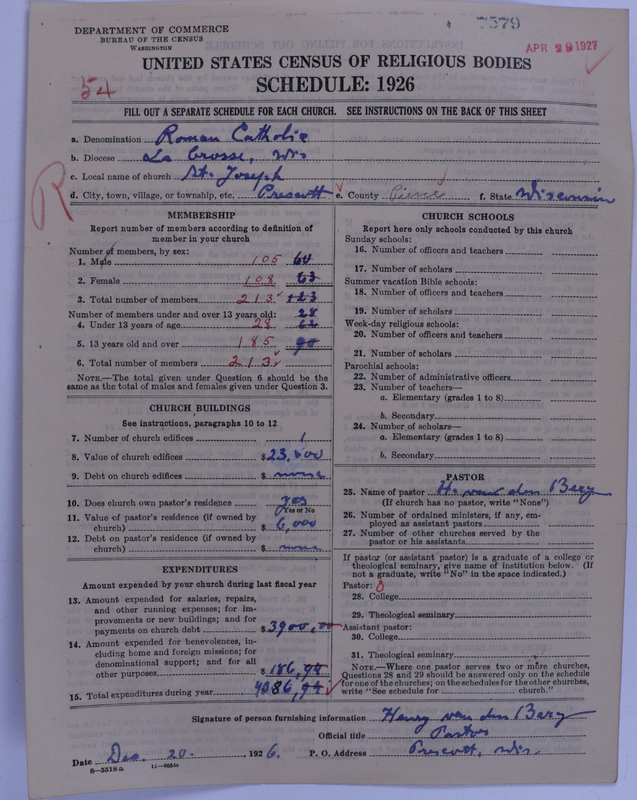 7579
APR 29 1927
DEPARTMENT OF COMMERCE
BUREAU OF THE CENSUS
WASHINGTON
UNITED STATES CENSUS OF RELIGIOUS BODIES
SCHEDULE: 1926
54
FILL OUT A SEPARATE SCHEDULE FOR EACH CHURCH. SEE INSTRUCTIONS ON THE BACK OF THIS SHEET
R
a. Denomination Roman Catholic
b. Diocese La Crosse, Wis
c. Local name of church St. Joseph
d. City, town, village, or township, etc. Prescott e. County Pierce f. State Wisconsin
MEMBERSHIP
Report number of members according to definition of
member in your church
Number of members, by sex:
1. Male 105 60
2. Female 108 63
3. Total number of members 213 123
Number of members under and over 13 years old: 28
4. Under 13 years of age 28
5. 13 years old and over 185 90
6. Total number of members 213
NOTE.—The total given under Question 6 should be
same as the total of males and females given under Question 3.
CHURCH BUILDINGS
See instructions, paragraphs 10 to 12
7. Number of church edifices 1
8. Value of church edifices $ 23,000
9. Debt on church edifices $ none
10. Does church own pastor's residence yes
Yes or No
11. Value of pastor's residence (if owned by
church) $ 6,000
12. Debt on pastor's residence (if owned by
church) $ none
EXPENDITURES
Amount expended by your church during last fiscal year
13. Amount expended for salaries, repairs,
and other running expenses; for im-
provements or new buildings; and for
payments on church debt $ 3900,00
14. Amount expended for benevolences, in-
cluding home and foreign missions; for
denominational support; and for all
other purposes $ 186,94
15. Total expenditures during year 4086,94
CHURCH SCHOOLS
Report here only schools conducted by this church
Sunday schools:
16. Number of officers and teachers
17. Number of scholars
Summer vacation Bible schools:
18. Number of officers and teachers
19. Number of scholars
Week-day religious schools:
20. Number of officers and teachers
21. Number of scholars
Parochial schools:
22. Number of administrative officers
23. Number of teachers—
a. Elementary (grades 1 to 8)
b. Secondary
24. Number of scholars—
a. Elementary (grades 1 to 8)
b. Secondary
PASTOR
25. Name of pastor H. van den Berg
(If church has no pastor, write "None")
26. Number of ordained ministers, if any, em-
ployed as assistant pastors
27. Number of other churches served by the
pastor or his assistants
If pastor (or assistant pastor) is a graduate of a college or
theological seminary, give name of institution below. (If
not a graduate, write "No" in the space indicated.)
Pastor: 0
28. College
29. Theological seminary
Assistant pastor:
30. College
31. Theological seminary
NOTE.—Where one pastor serves two or more churches,
Questions 28 and 29 should be answered only on the schedule
for one of the churches; on the schedules for the other churches,
write "See schedule for church."
Signature of person furnishing information Henry van den Berg
Official title Pastor
Date Dec. 20. 1926. P. O. Address Prescott, Wis.
8—5518a